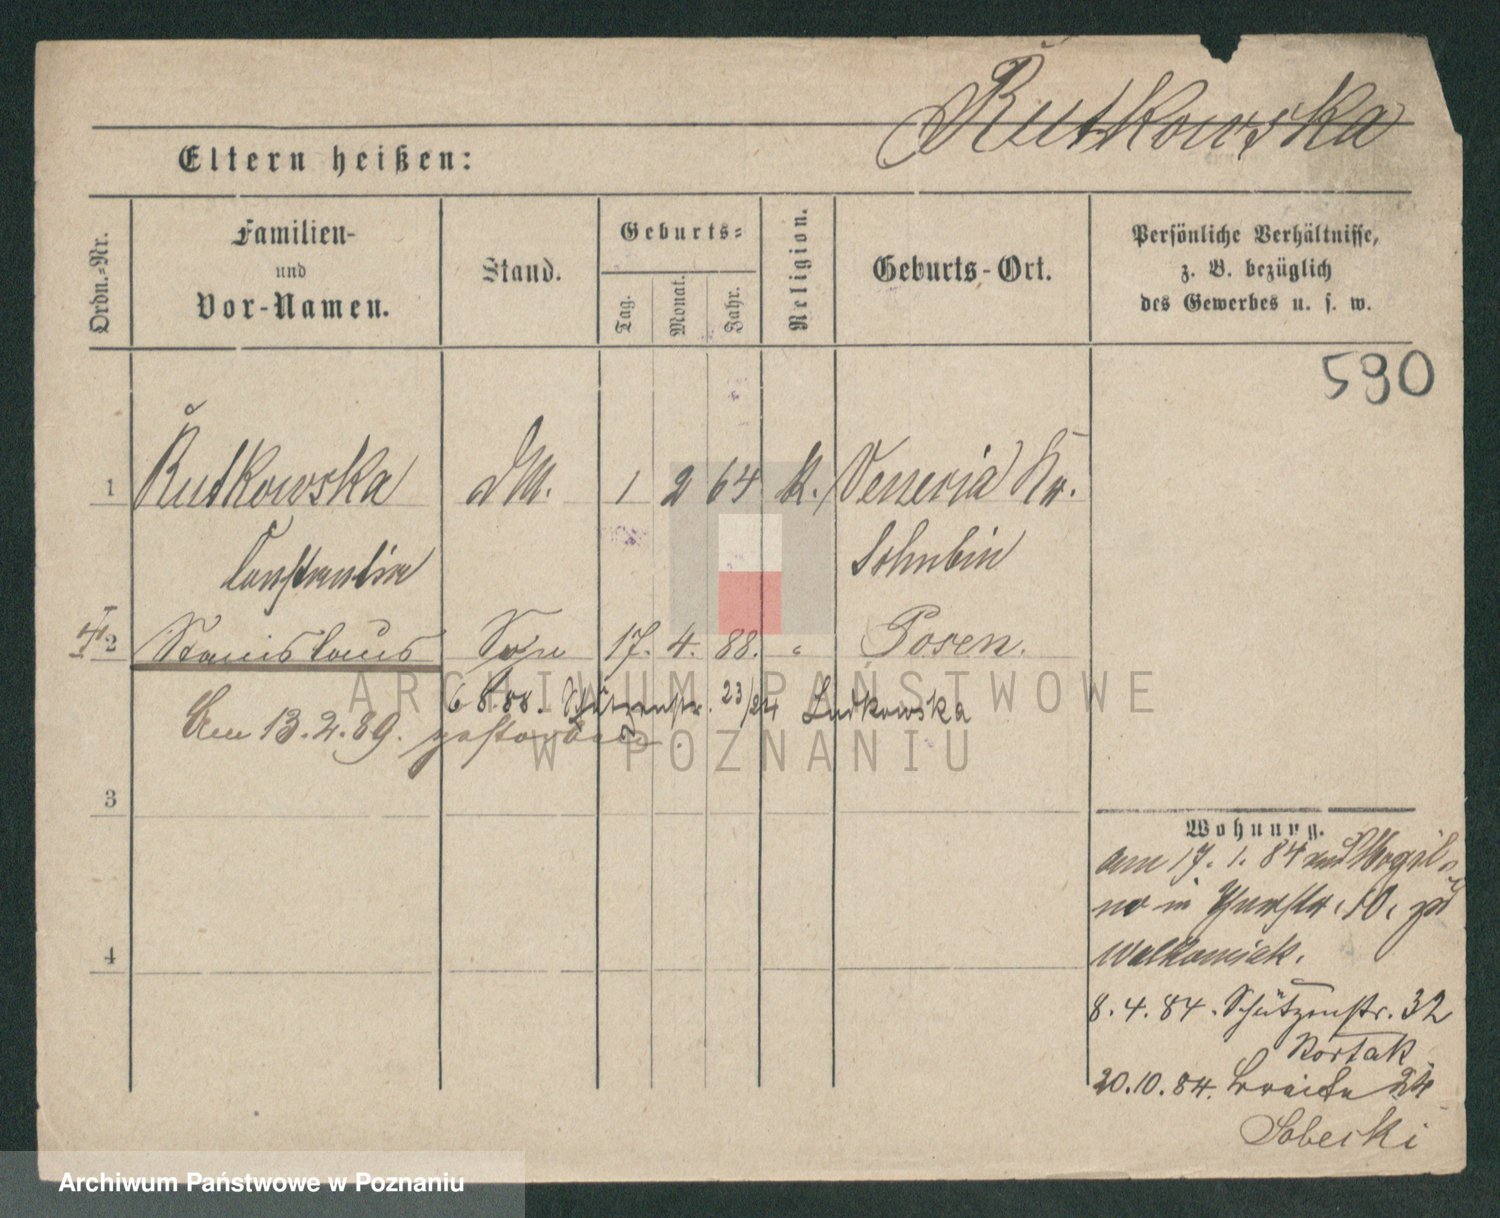 Rutkowska
Eltern heißen:
Ordn.-Nr.
Familien-
und
Vor-Namen.
Stand.
Geburts-
Tag.
Monat.
Jahr.
Religion.
Geburts-Ort.
Persönliche Verhältnisse,
z. B. bezüglich
des Gewerbes u. s. w.
590
1 Rutkowska dM. 1 2 64 K. Veneria Kr.
Constantia Schubin
2 Stanislaus Sohn 17. 4. 88. " Posen.
6 8.88. Schützenstr. 23/24 Ludkowska
Am 13.2.89. gestorben.
3
4
Wohnung.
am 17. 1. 84 aus Mogil-
no in 10.
Walkowiak.
8. 4. 84. Schützenstr. 32
Kortak
20.10.84. Breite 24
Sobecki
ARCHIWUM PAŃSTWOWE
W POZNANIU
Archiwum Państwowe w Poznaniu